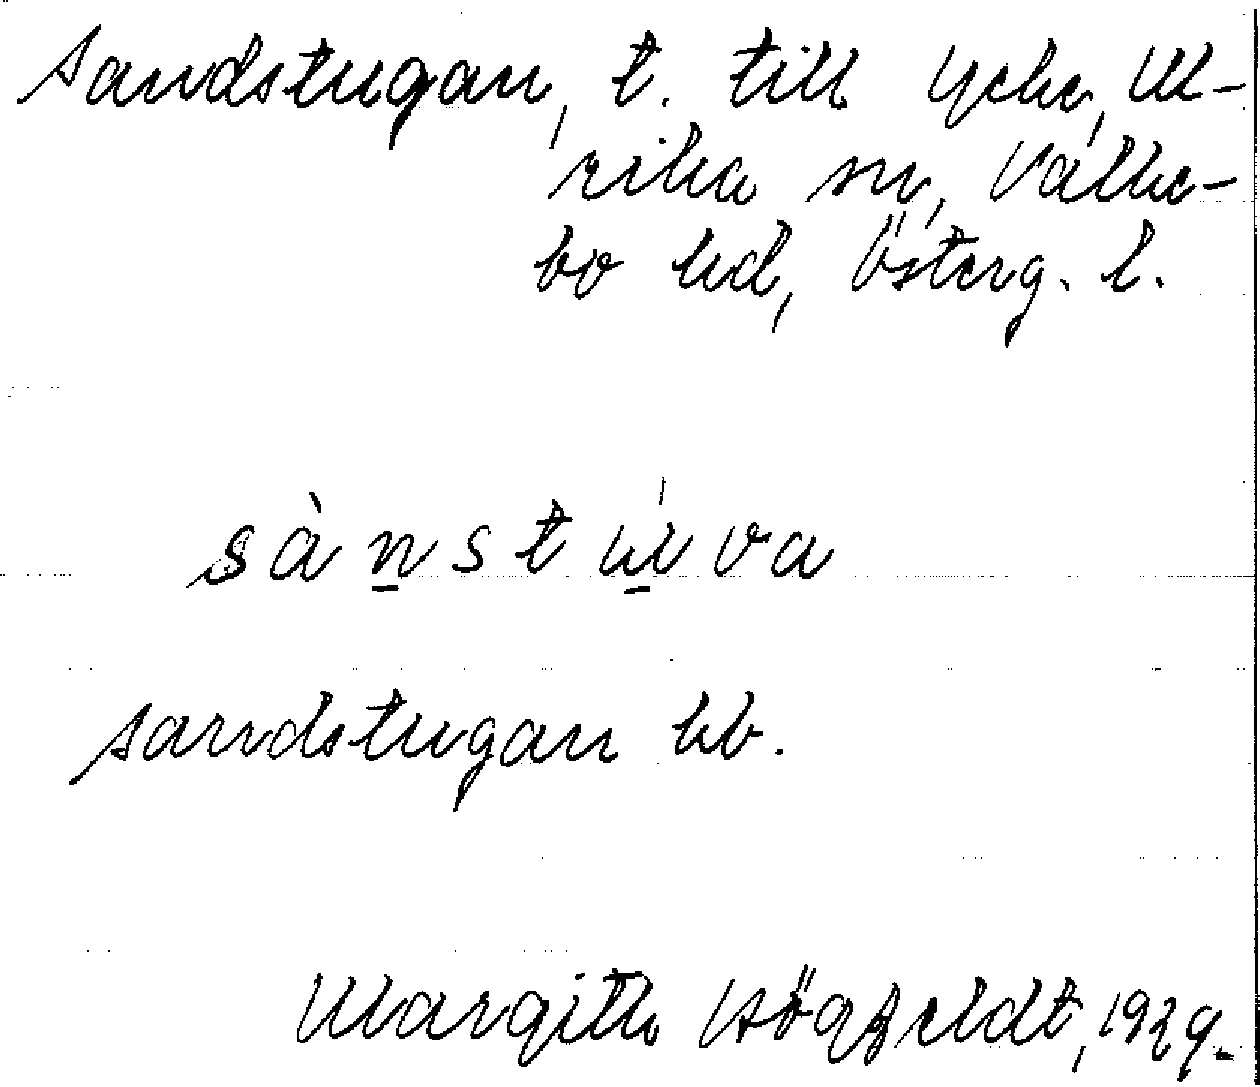 Sandstugan, t. till Ycke, Ul-
rika sn, Valke-
bo hd, Österg. l.
sànstùva
sandstugan hb.
Margith Högfeldt, 1929.